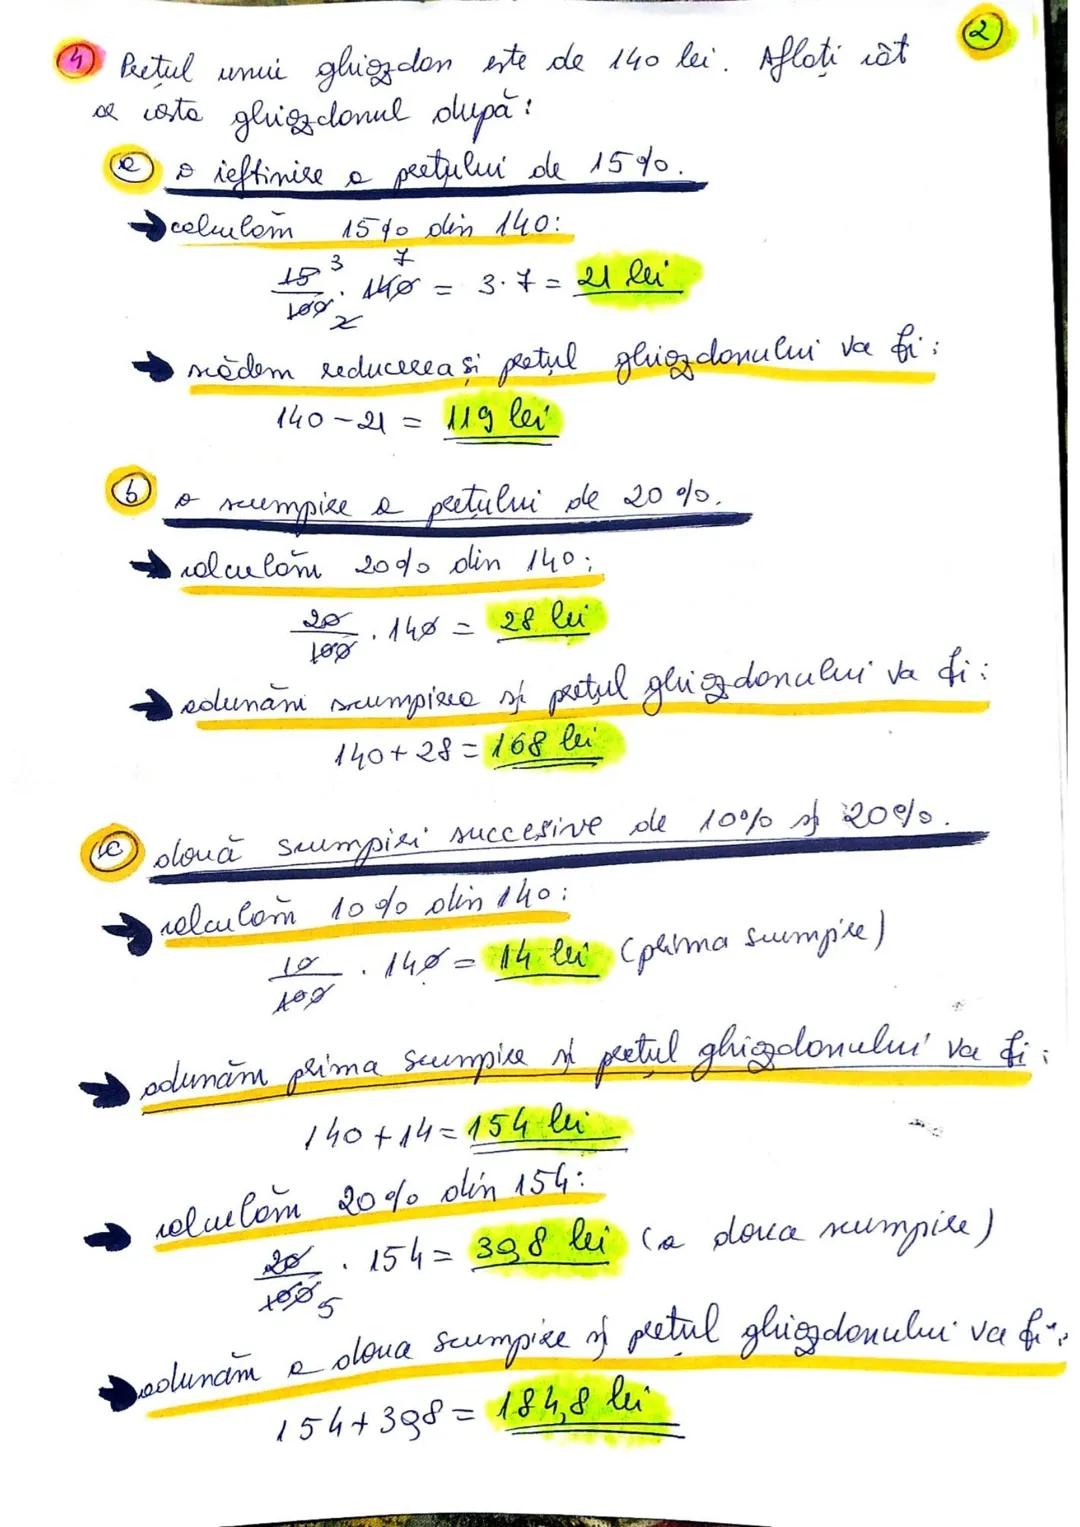 ②
④ Prețul unui ghiozdan este de 140 lei. Aflați cât
ce costa ghiozdanul după:
ⓐ o ieftinire a prețului de 15%.
→ calculăm 15% din 140:
15/100 3 2 · 140 7 = 3·7 = 21 lei
→ scădem reducerea și prețul ghiozdanului va fi:
140-21 = 119 lei
ⓑ o scumpire a prețului de 20%.
→ calculăm 20% din 140:
20/100 · 140 = 28 lei
→ adunăm scumpirea și prețul ghiozdanului va fi:
140+28 = 168 lei
ⓒ două scumpiri succesive de 10% și 20%.
→ calculăm 10% din 140:
10/100 · 140 = 14 lei (prima scumpire)
→ adunăm prima scumpire și prețul ghiozdanului va fi:
140+14 = 154 lei
→ calculăm 20% din 154:
20/100 5 · 154 = 30,8 lei (a doua scumpire)
→ adunăm a doua scumpire și prețul ghiozdanului va fi:
154+30,8 = 184,8 lei